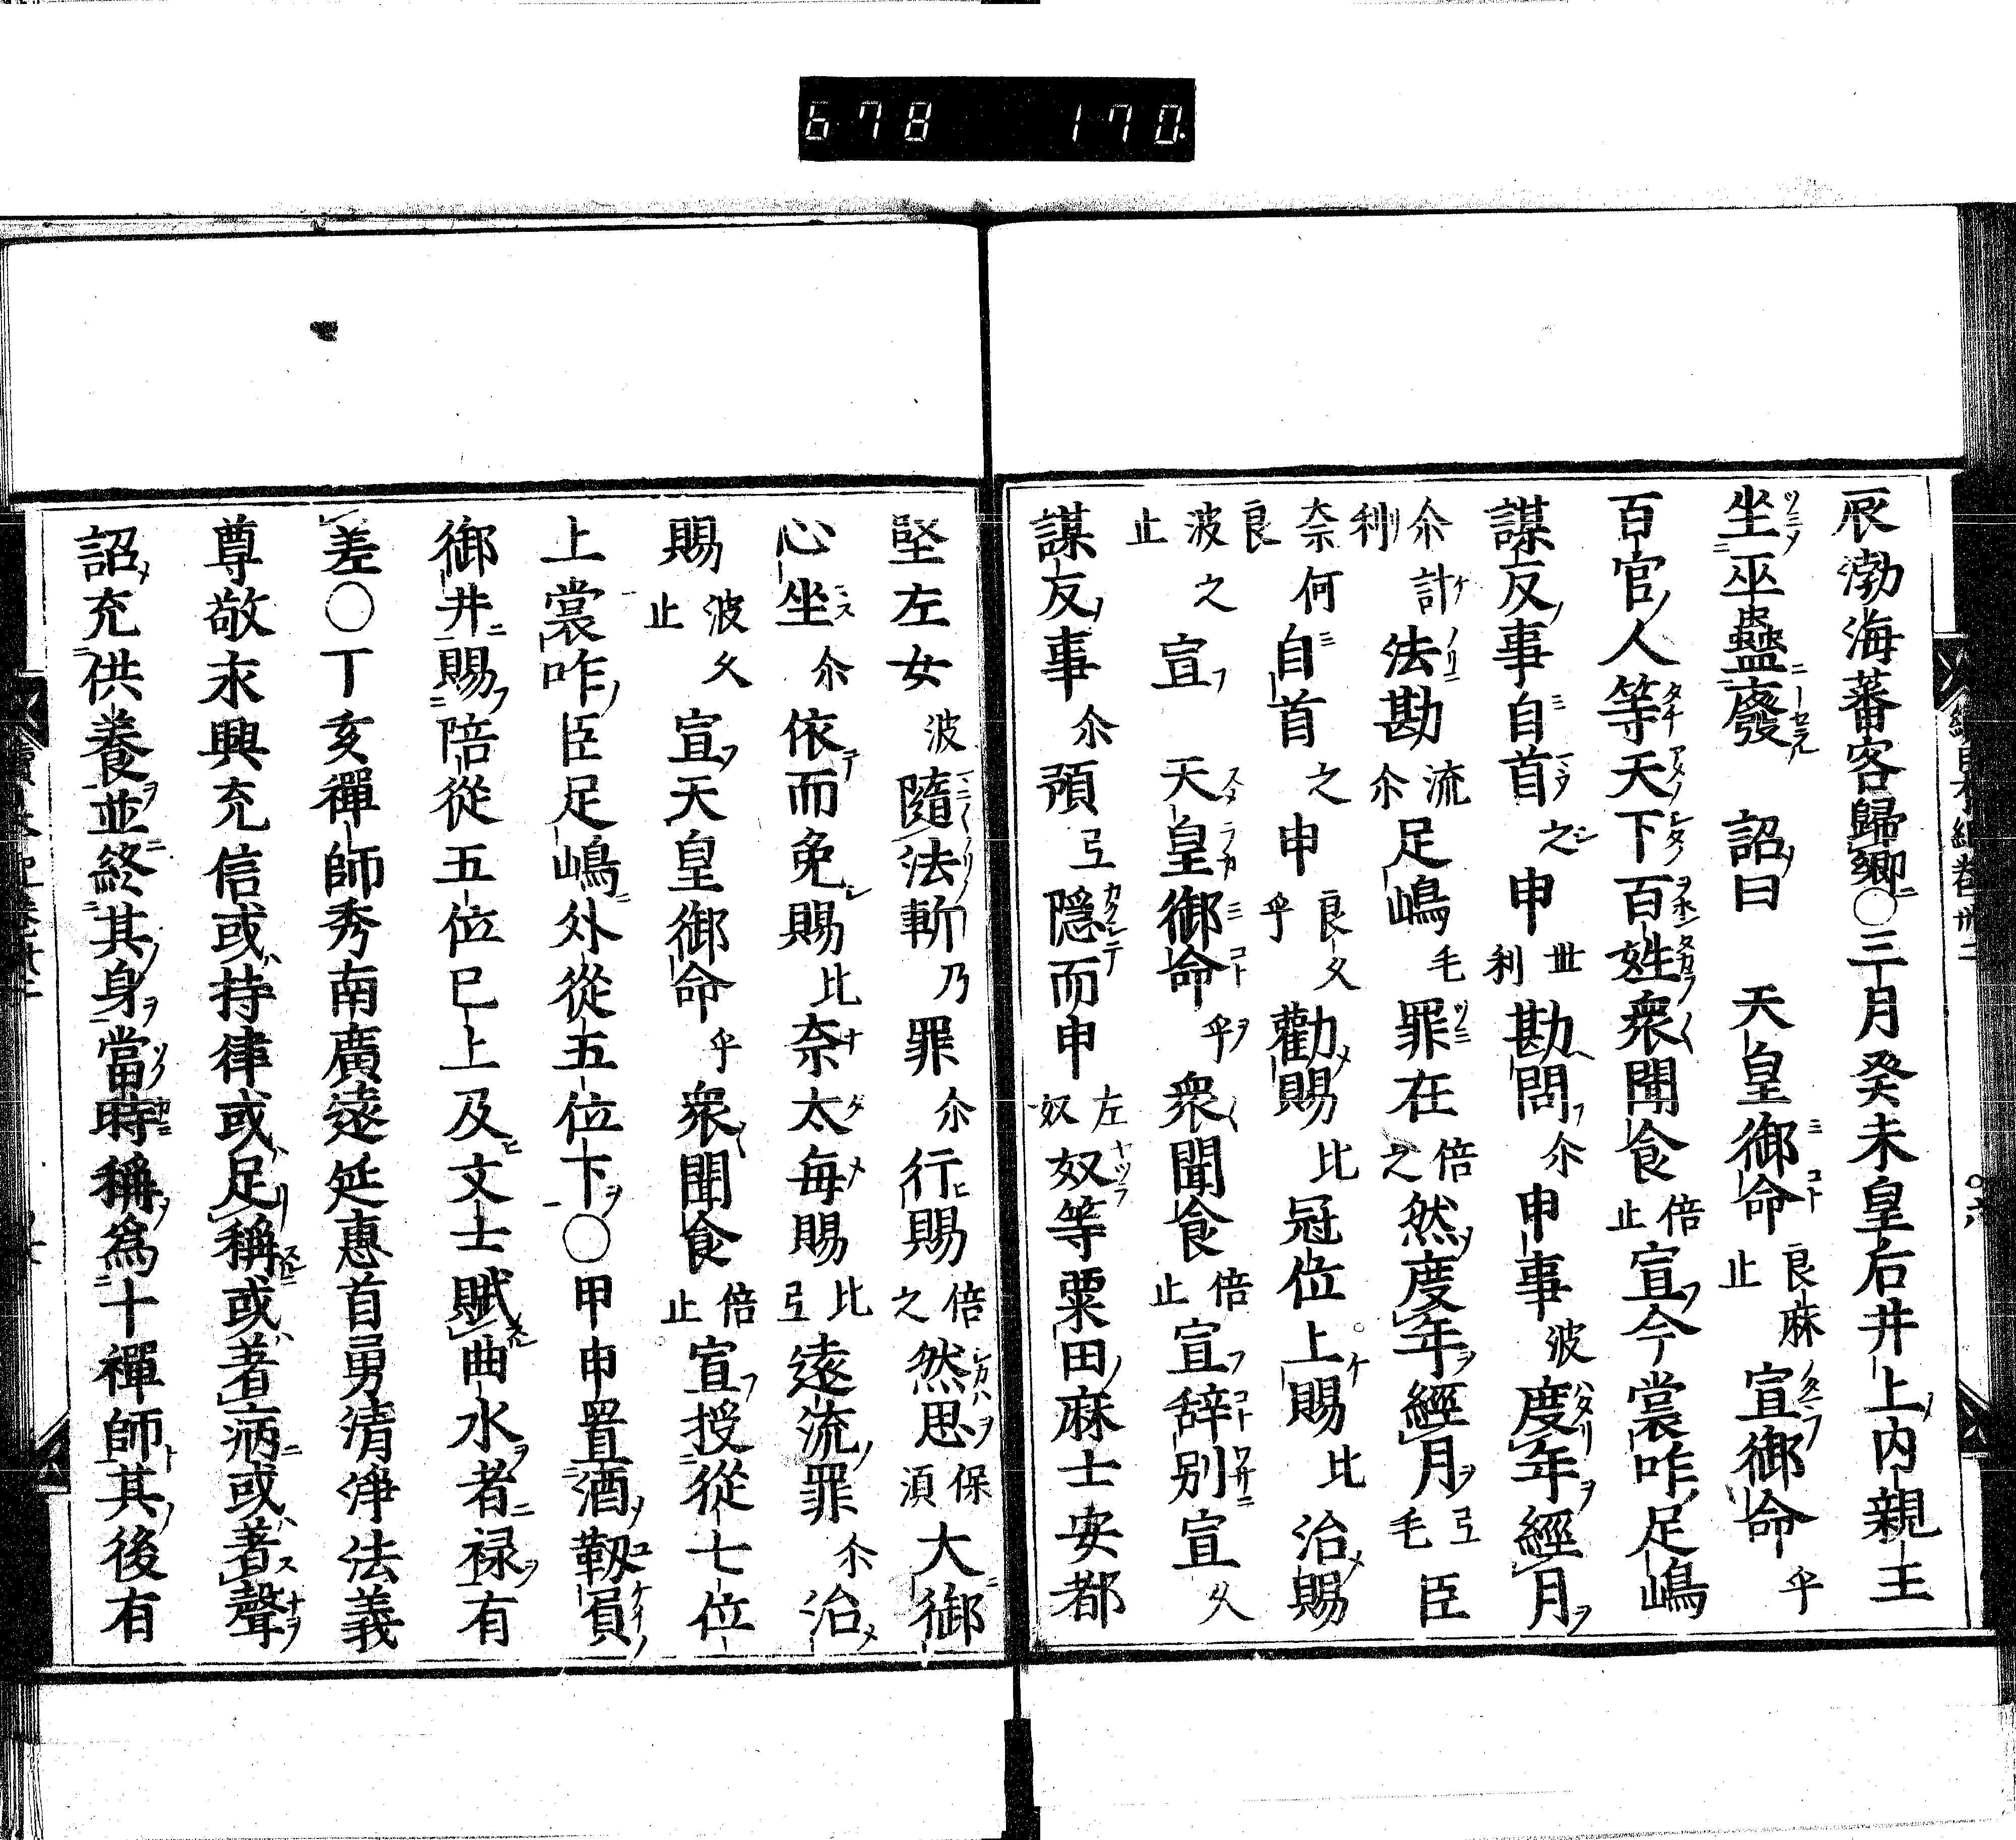 678 170.
辰渤海蕃客歸郷○三月癸未皇后井上内親王
坐巫蠱廢 詔曰 天皇御命良麻止宣御命乎
百官人等天下百姓衆聞食倍止宣今裳咋足嶋
謀反事自首之申世利勘問尓申事波度年經月
尓計利法勘流尓足嶋毛罪在倍之然度年經月弖毛臣
奈良何自首之申良久乎勸賜比冠位上賜比治賜
波止之宣天皇御命乎衆聞食倍止宣辞別宣久
謀反事尓預弖隠而申左奴奴等粟田麻士安都
堅左女波隨法斬乃罪尓行賜倍之然思保須大御
心坐尓依而免賜比奈太毎賜比弖遠流罪尓治
賜波久止宣天皇御命乎衆聞食倍止宣授從七位
上裳咋臣足嶋外從五位下○甲申置酒靱負
御井賜陪從五位已上及文士賦曲水者禄有
差○丁亥禪師秀南廣遠延惠首勇清淨法義
尊敬永興充信或持律或足稱或著病或著聲
詔充供養並終其身當時稱爲十禪師其後有